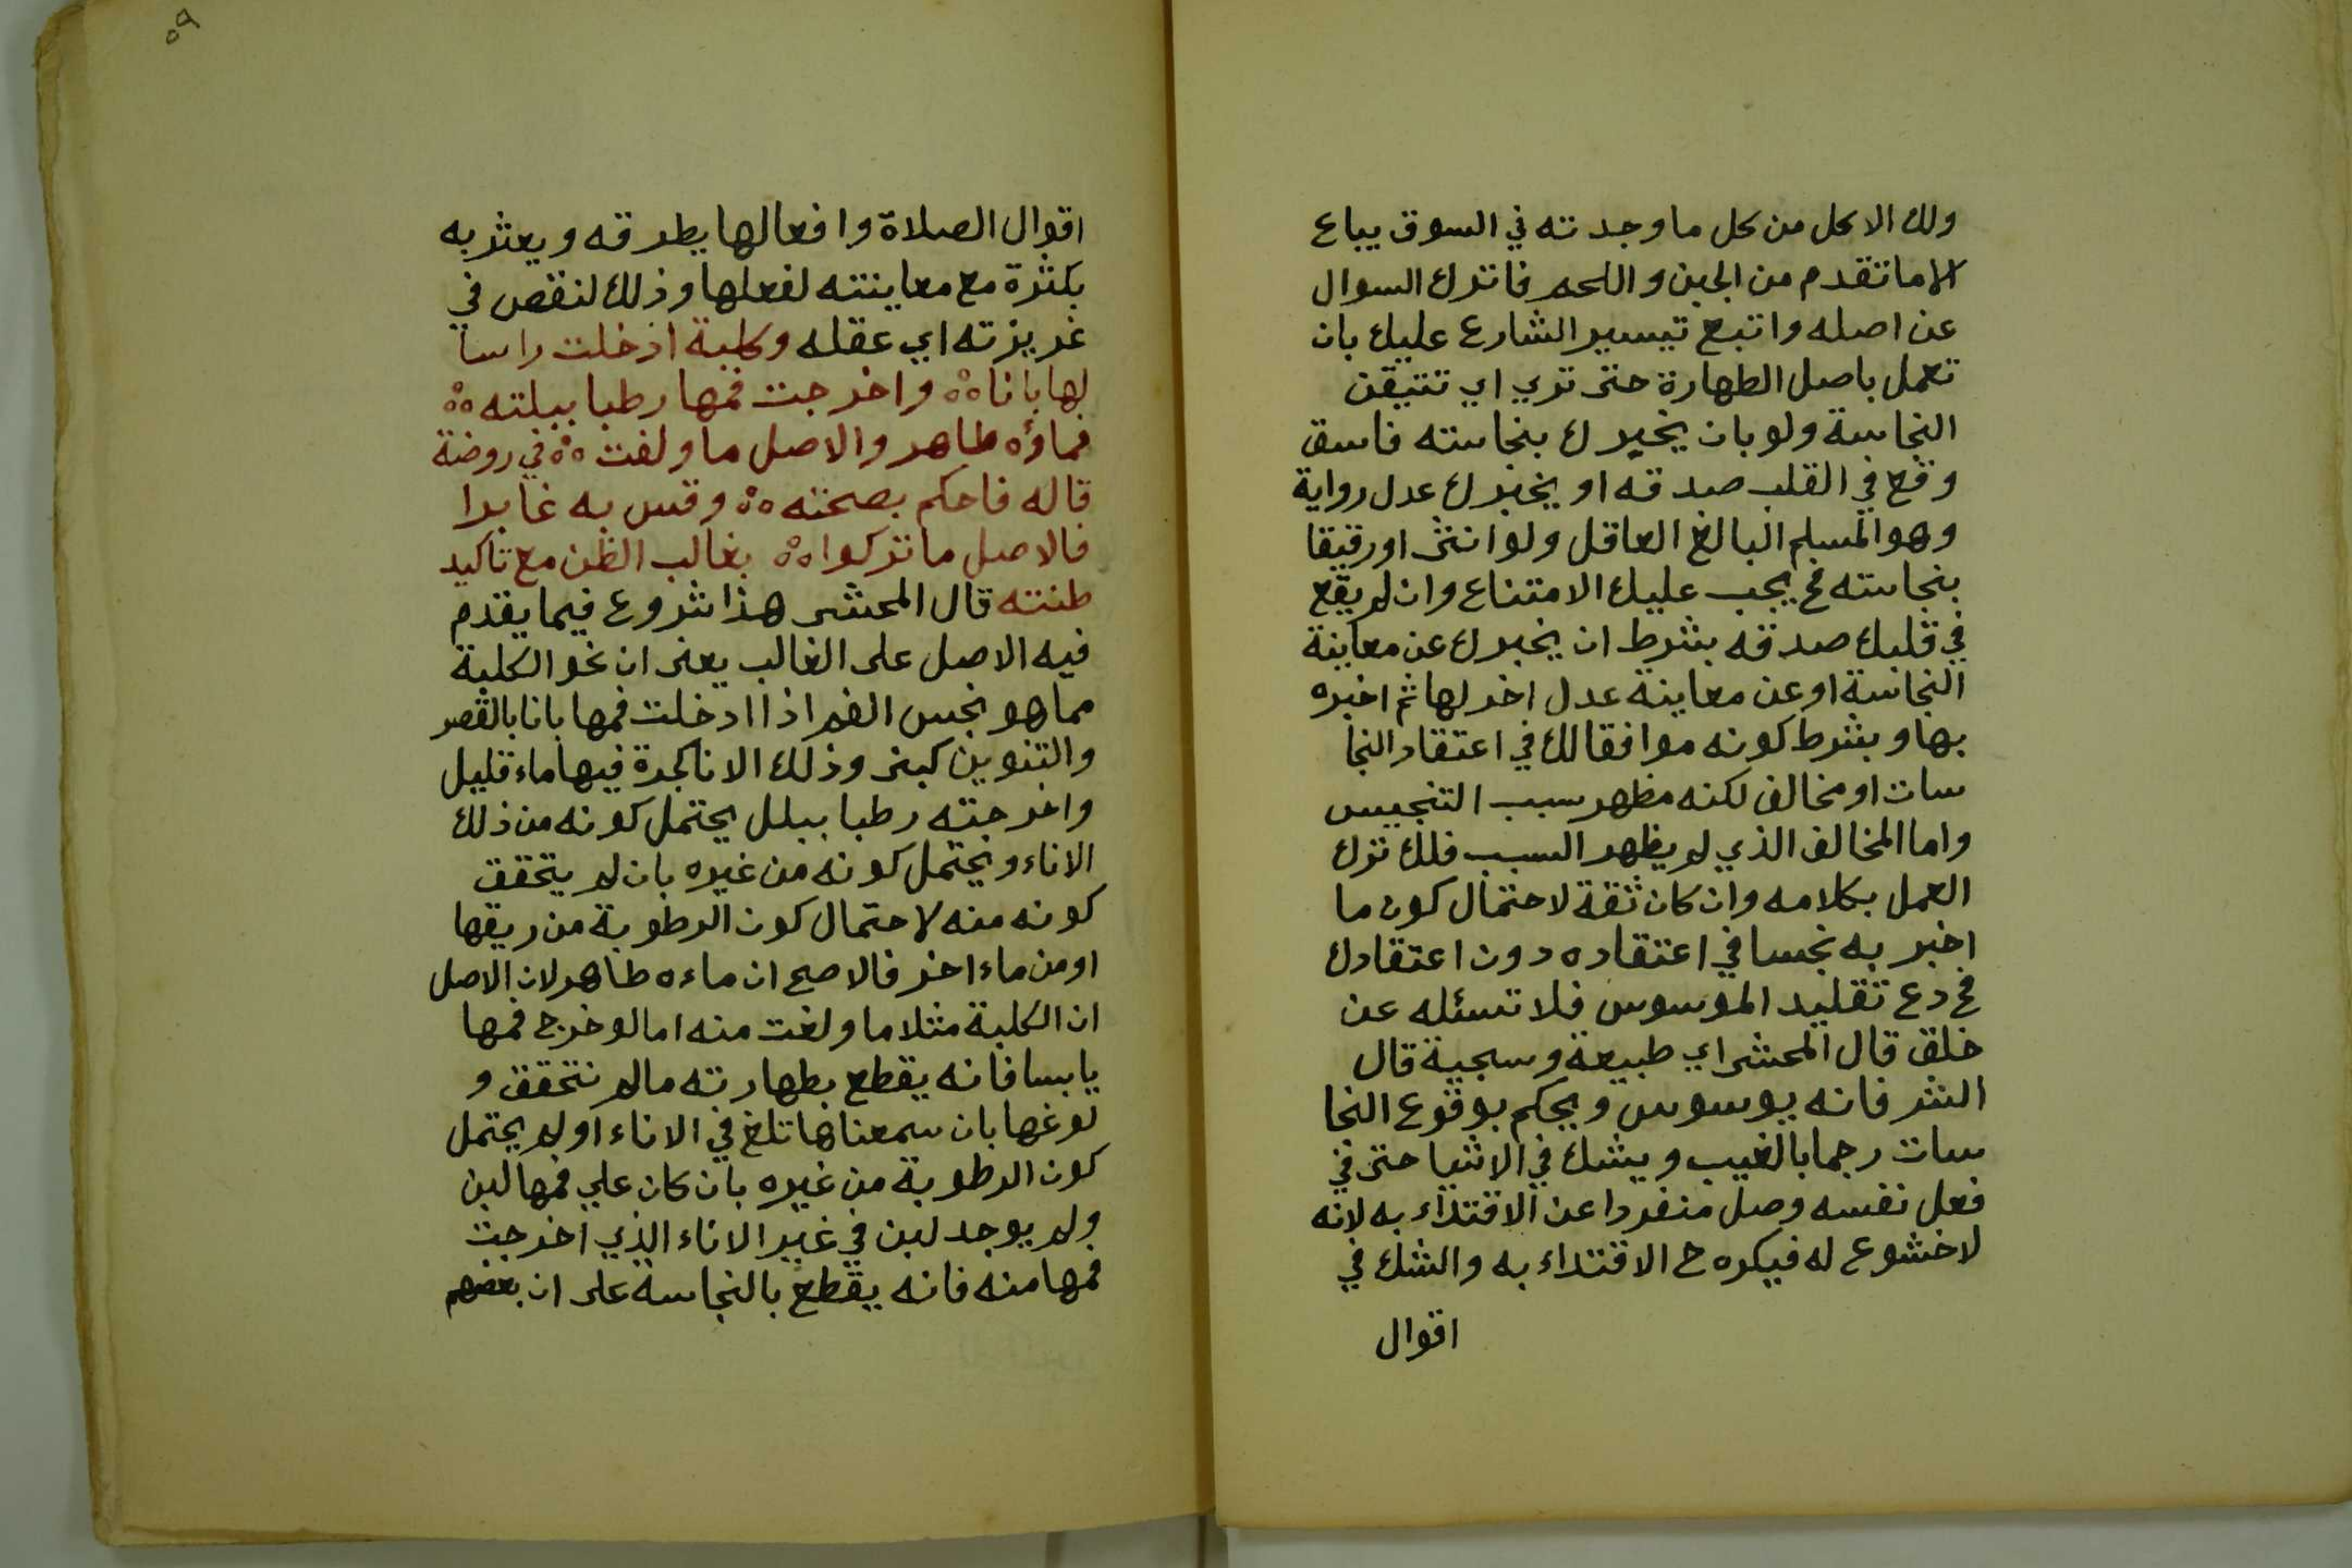 ولك الاكل من كل ما وجدته في السوق يباع
الا ما تقدم من الجبن واللحم فاترك السوال
عن اصله واتبع تيسير الشارع عليك بان
تعمل باصل الطهارة حتى تري اي تتيقن
النجاسة ولو بان يخبرك بنجاسته فاسق
وقع في القلب صدقه او يخبرك عدل رواية
وهو المسلم البالغ العاقل ولو انثى او رقيقا
بنجاسته فح يجب عليك الامتناع وان لم يقع
في قلبك صدقه بشرط ان يخبرك عن معاينة
النجاسة او عن معاينة عدل اخر لها ثم اخبره
بها وبشرط كونه موافقا لك في اعتقاد النجا
سات او مخالف لكنه مظهر سبب التنجيس
واما المخالف الذي لم يظهر السبب فلك ترك
العمل بكلامه وان كان ثقة لاحتمال كون ما
اخبر به نجسا في اعتقاده دون اعتقادك
فح دع تقليد الموسوس فلا تسئله عن
خلق قال المحشى اي طبيعة وسجية قال
الشر فانه يوسوس ويحكم بوقوع النجا
سات رجما بالغيب ويشك في الاشيا حتى في
فعل نفسه وصل منفردا عن الاقتداء به لانه
لا خشوع له فيكره ح الاقتداء به والشك في
اقوال
٥٩
اقوال الصلاة وافعالها يطرقه ويعثر به
بكثرة مع معاينته لفعلها وذلك لنقص في
غريزته اي عقله وكلبة ادخلت راسا
لها بانا ه° واخرجت فمها رطبا ببلته ه°
فماؤه طاهر والاصل ما ولغت ه° في روضة
قاله فاحكم بصحته ه° وقس به غابرا
فالاصل ما تركوا ه° بغالب الظن مع تاكيد
طنته قال المحشى هذا شروع فيما يقدم
فيه الاصل على الغالب يعنى ان نحو الكلبة
مما هو نجس الفم اذا ادخلت فمها بانا بالقصر
والتنوين كبنى وذلك الانا كجرة فيها ماء قليل
واخرجته رطبا ببلل يحتمل كونه من ذلك
الاناء ويحتمل كونه من غيره بان لم يتحقق
كونه منه لاحتمال كون الرطوبة من ريقها
او من ماء اخر فالاصح ان ماءه طاهر لان الاصل
ان الكلبة مثلا ما ولغت منه اما لو خرج فمها
يابسا فانه يقطع بطهارته مالم نتحقق و
لوغها بان سمعناها تلغ في الاناء او لم يحتمل
كون الرطوبة من غيره بان كان علي فمها لبن
ولم يوجد لبن في غير الاناء الذي اخرجت
فمها منه فانه يقطع بالنجاسة على ان بعضهم